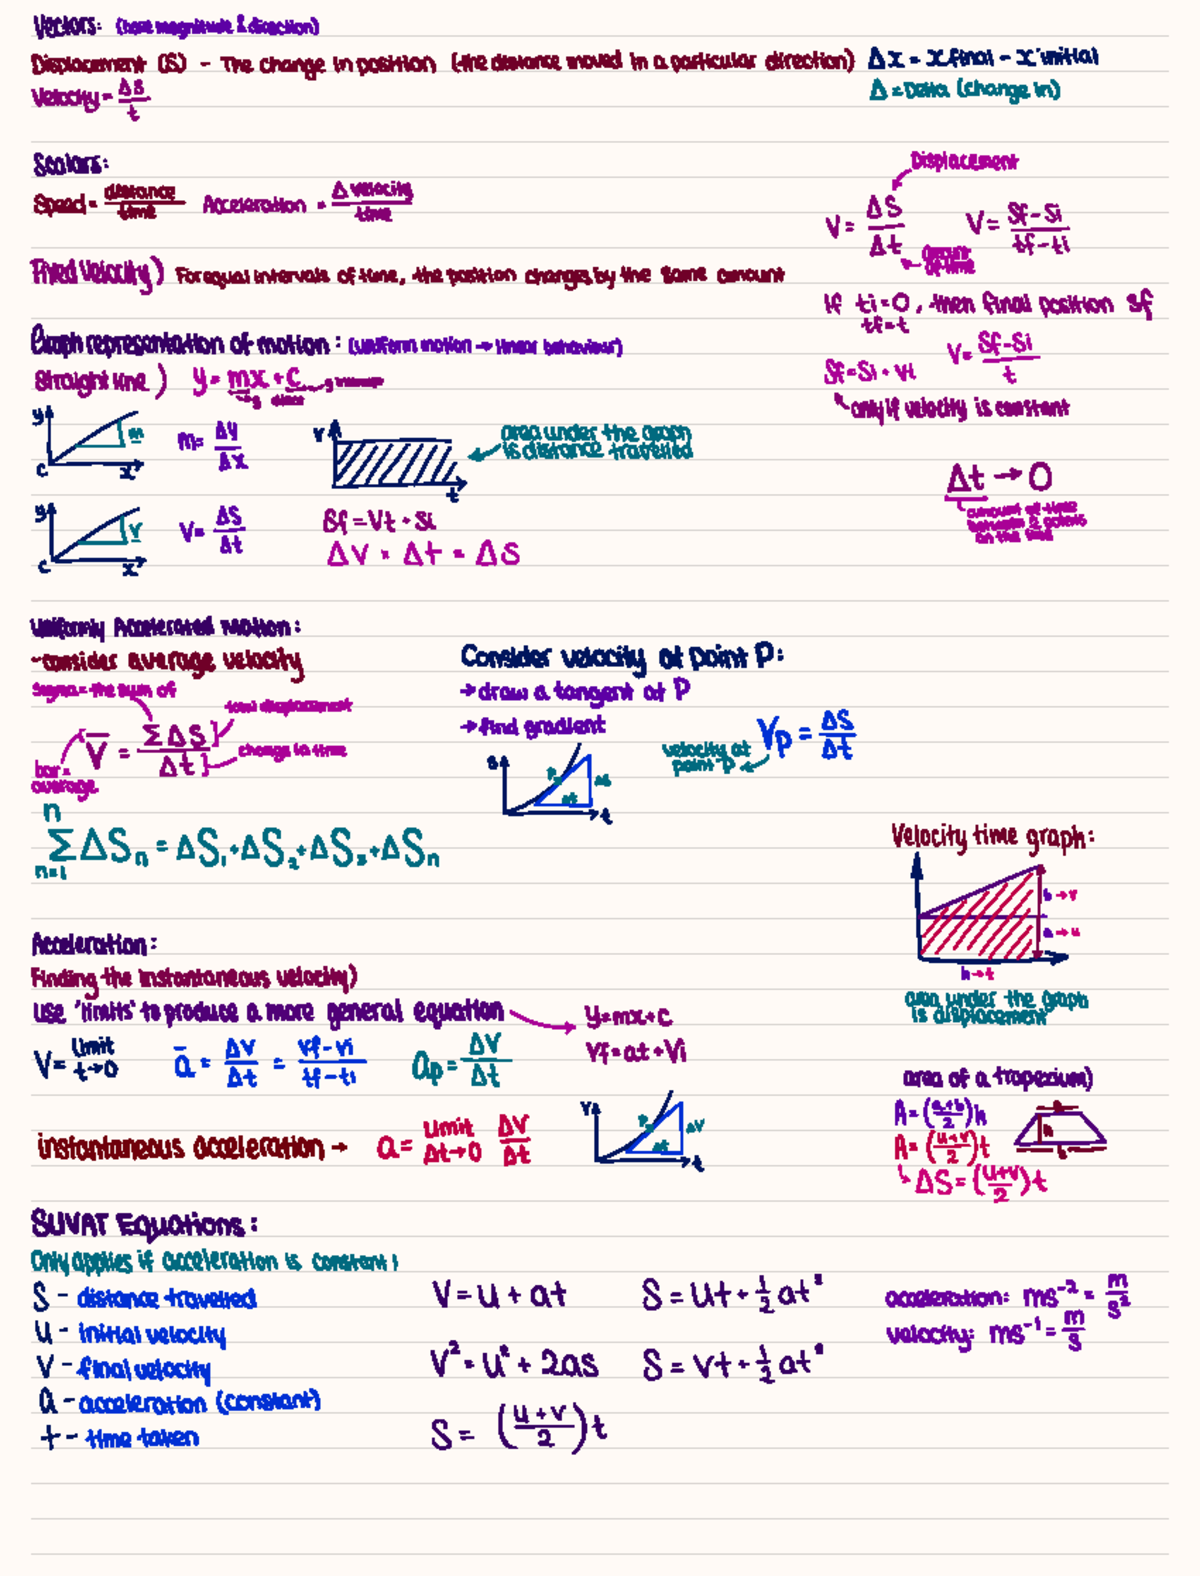 Vectors: (have magnitude & direction)
Displacement (S) - The change in position (the distance moved in a particular direction) Δx = xfinal - x initial
Velocity = ΔS/t
Δ = Delta (change in)
Scalars:
Speed = distance/time Acceleration = Δ velocity/time
Displacement
V = ΔS/Δt V = Sf-Si/tf-ti
amount of time
Fixed Velocity) For equal intervals of time, the position changes by the same amount
If ti=0, then final position Sf
tf=t
Sf=Si+vt V = Sf-Si/t
only if velocity is constant
Graph representation of motion: (uniform motion → linear behaviour)
Straight line) y = mx + c
y
m
c
x
m = Δy/Δx
V
t
area under the graph
is distance travelled
y
V
c
x
V = ΔS/Δt
Sf = Vt + Si
ΔV × Δt = ΔS
Δt → 0
amount of time
between 2 points
on the line
Uniformly Accelerated Motion:
-consider average velocity
Sigma = the sum of
total displacement
V̄ = ΣΔS/Δt
change in time
bar =
average
n
ΣΔSn = ΔS1+ΔS2+ΔS3+ΔSn
n=1
Consider velocity at point P:
→ draw a tangent at P
→ find gradient
S
P
ΔS
Δt
t
velocity at
point P
Vp = ΔS/Δt
Velocity time graph:
b→v
a→u
h→t
area under the graph
is displacement
Acceleration:
Finding the instantaneous velocity)
use 'limits' to produce a more general equation
y=mx+c
Vf=at+Vi
V = limit t→0 ā = ΔV/Δt = Vf-Vi/tf-ti ap = ΔV/Δt
instantaneous acceleration → a = limit Δt→0 ΔV/Δt
V
P
ΔV
Δt
t
area of a trapezium)
A=(a+b/2)h
A=(u+v/2)t
ΔS=(u+v/2)t
a
h
b
SUVAT Equations:
Only applies if acceleration is constant!
S - distance travelled
u - initial velocity
V - final velocity
a - acceleration (constant)
t - time taken
V = u + at
V² = u² + 2as
S = (u+v/2)t
S = ut + 1/2 at²
S = vt - 1/2 at²
acceleration: ms⁻² = m/s²
velocity: ms⁻¹ = m/s